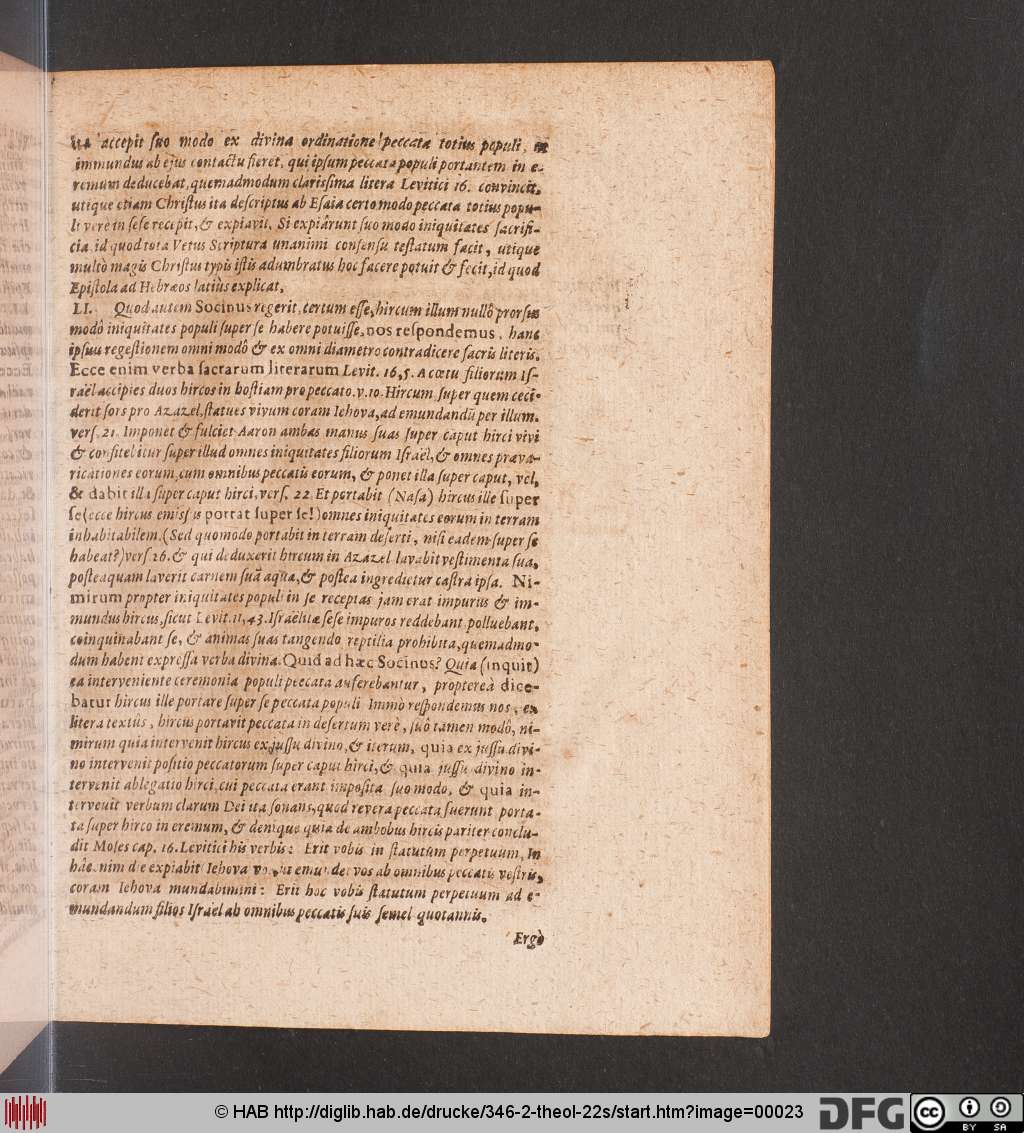 ita accepit ſuo modo ex divina ordinatione peccata totius populi, ut
immundus ab ejus contactu fieret, qui ipſum peccata populi portantem in e-
remum deducebat, quemadmodum clariſſima litera Levitici 16. convincit,
utique etiam Chriſtus ita deſcriptus ab Eſaia certo modo peccata totius popu-
li verè in ſeſe recepit, & expiavit. Si expiârunt ſuo modo iniquitates ſacrifi-
cia, id quod tota Vetus Scriptura unanimi conſenſu teſtatum facit, utique
multò magis Chriſtus typis iſtis adumbratus hoc facere potuit & fecit, id quod
Epiſtola ad Hebræos latiùs explicat.
LI. Quod autem Socinus regerit, certum eſſe, hircum illum nullô prorſus
modô iniquitates populi ſuper ſe habere potuiſſe, nos reſpondemus, hanc
ipſius regeſtionem omni modô & ex omni diametro contradicere ſacris literis.
Ecce enim verba ſacrarum literarum Levit. 16, 5. A cœtu filiorum Iſ-
raël accipies duos hircos in hoſtiam pro peccato. v. 10. Hircum, ſuper quem ceci-
derit ſors pro Azazel, ſtatues vivum coram Iehova, ad emundandū per illum.
verſ. 21. Imponet & fulciet Aaron ambas manus ſuas ſuper caput hirci vivi
& confitebitur ſuper illud omnes iniquitates filiorum Iſraël, & omnes præva-
ricationes eorum, cum omnibus peccatis eorum, & ponet illa ſuper caput, vel,
& dabit illa ſuper caput hirci, verſ. 22. Et portabit (Naſa) hircus ille ſuper
ſe (ecce hircus emiſſus portat ſuper ſe!) omnes iniquitates eorum in terram
inhabitabilem. (Sed quomodo portabit in terram deſerti, niſi eadem ſuper ſe
habeat?) verſ. 26. & qui deduxerit hircum in Azazel lavabit veſtimenta ſua,
poſteaquam laverit carnem ſuâ aquâ, & poſtea ingredietur caſtra ipſa. Ni-
mirum propter iniquitates populi in ſe receptas jam erat impurus & im-
mundus hircus, ſicut Levit. 11, 43. Iſraëlitæ ſeſe impuros reddebant, polluebant,
coinquinabant ſe, & animas ſuas tangendo reptilia prohibita, quemadmo-
dum habent expreſſa verba divina. Quid ad hæc Socinus? Quia (inquit)
ea interveniente ceremonia populi peccata auferebantur, proptereà dice-
batur hircus ille portare ſuper ſe peccata populi. Immò reſpondemus nos, ex
litera textûs, hircus portavit peccata in deſertum verè, ſuô tamen modô, ni-
mirum quia intervenit hircus ex juſſu divino, & iterum, quia ex juſſu divi-
no intervenit poſitio peccatorum ſuper caput hirci, & quia juſſu divino in-
tervenit ablegatio hirci, cui peccata erant impoſita ſuo modo, & quia in-
tervenit verbum clarum Dei ita ſonans, quod revera peccata fuerunt porta-
ta ſuper hirco in eremum, & denique quia de ambobus hircis pariter conclu-
dit Moſes cap. 16. Levitici his verbis: Erit vobis in ſtatutum perpetuum, In
hâc enim die expiabit Iehova vos, ut emundet vos ab omnibus peccatis veſtris,
coram Iehova mundabimini: Erit hoc vobis ſtatutum perpetuum ad e-
mundandum filios Iſraël ab omnibus peccatis ſuis ſemel quotannis.
Ergò
© HAB http://diglib.hab.de/drucke/346-2-theol-22s/start.htm?image=00023
DFG
cc BY SA